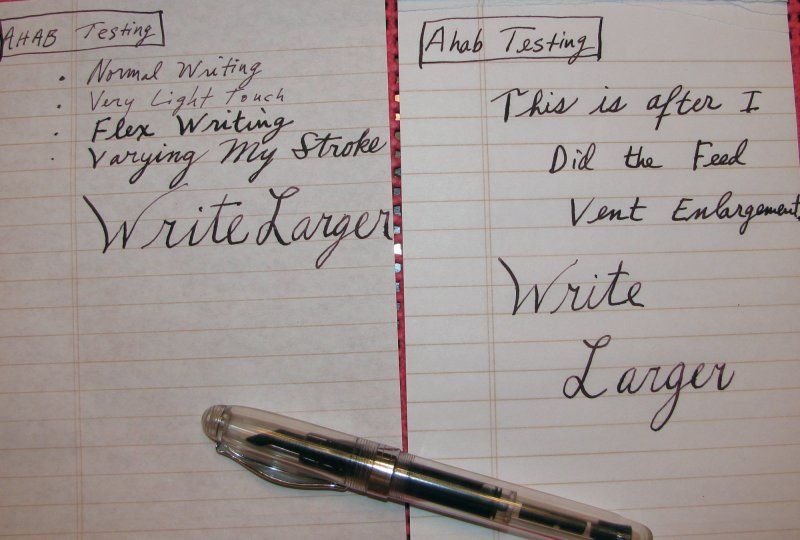 AHAB Testing
Normal Writing
Very Light Touch
Flex Writing
Varying My Stroke
Write Larger
Ahab Testing
This is after I
Did the Feed
Vent Enlargement
Write
Larger